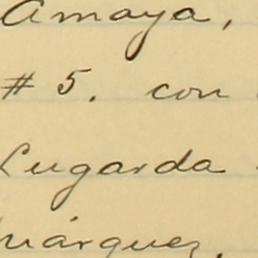 Amaya,
# 5. con
Lugarda
Márquez.